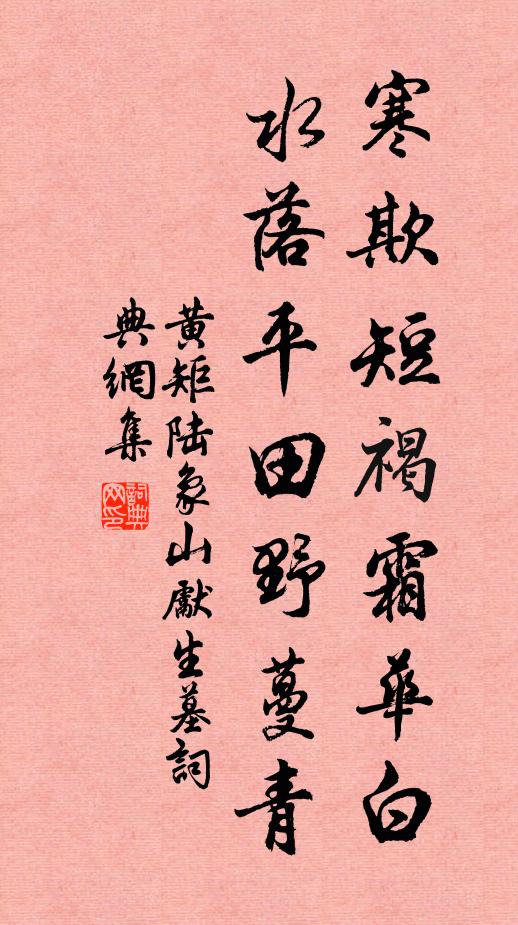 寒欺短褐霜華白
水落平田野蔓青
黃矩陸象山獻生墓詞
典網集
詞典网印